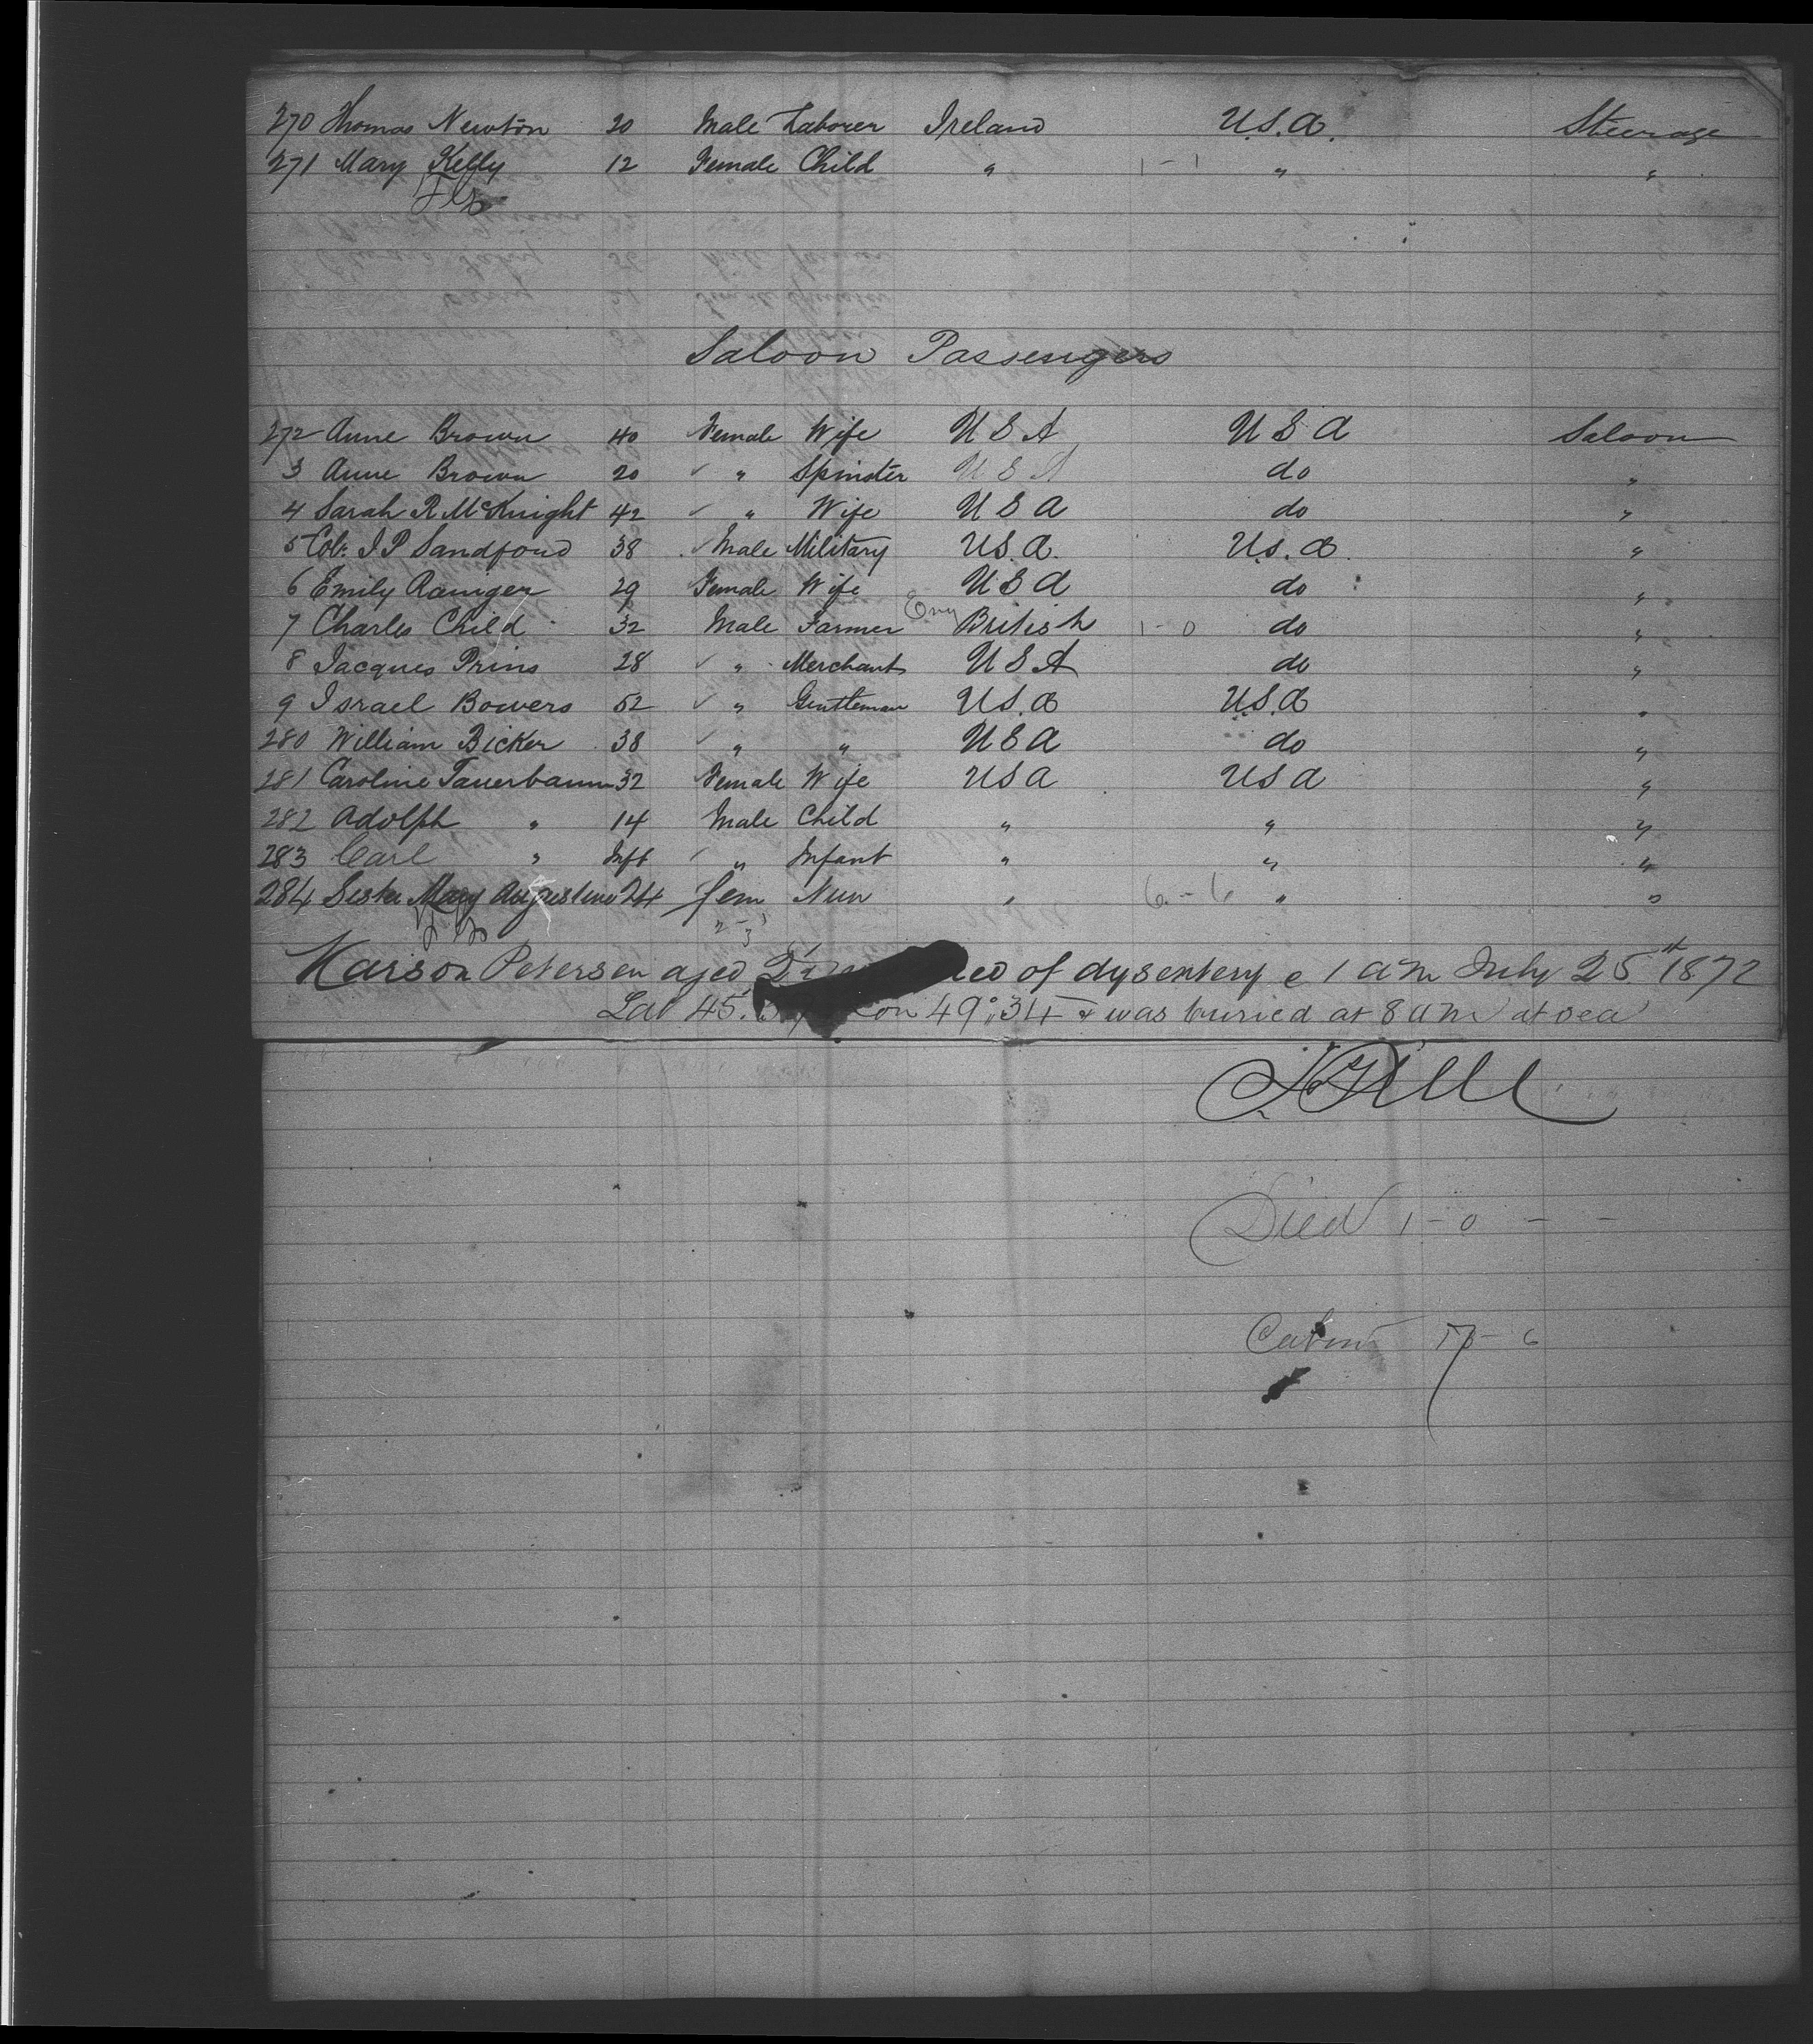 270 Thomas Newton 20 Male Laborer Ireland U.S.A. Steerage
271 Mary Kelly 12 Female Child " 1-1 " "
Saloon Passengers
272 Anne Brown 40 Female Wife U S A U S A Saloon
3 Anne Brown 20 ✓ " Spinster U S A do "
4 Sarah R McKnight 42 ✓ " Wife U S A do "
5 Col: J P Sandford 38 ✓ Male Military U.S.A. U.S.A. "
6 Emily Raniger 29 Female Wife U S A do "
7 Charles Child 32 Male Farmer Eng British 1-0 do "
8 Jacques Prins 28 ✓ " Merchant U S A do "
9 Israel Bowers 52 ✓ " Gentleman U.S.A U.S.A "
280 William Bicker 38 ✓ " " U S A do "
281 Caroline Tauerbaum 32 Female Wife U S A U S A "
282 Adolph " 14 Male Child " " "
283 Carl " Inft ✓ " Infant " " "
284 Sister Mary Augustine 24 Fem Nun " 6-6 " "
2-3
Petersen aged of dysentery 1 a m July 25th 1872
Lat 45. Lon 49°:34 & was buried at 8 a m at sea
Died 1-0 - -
Cabin 6